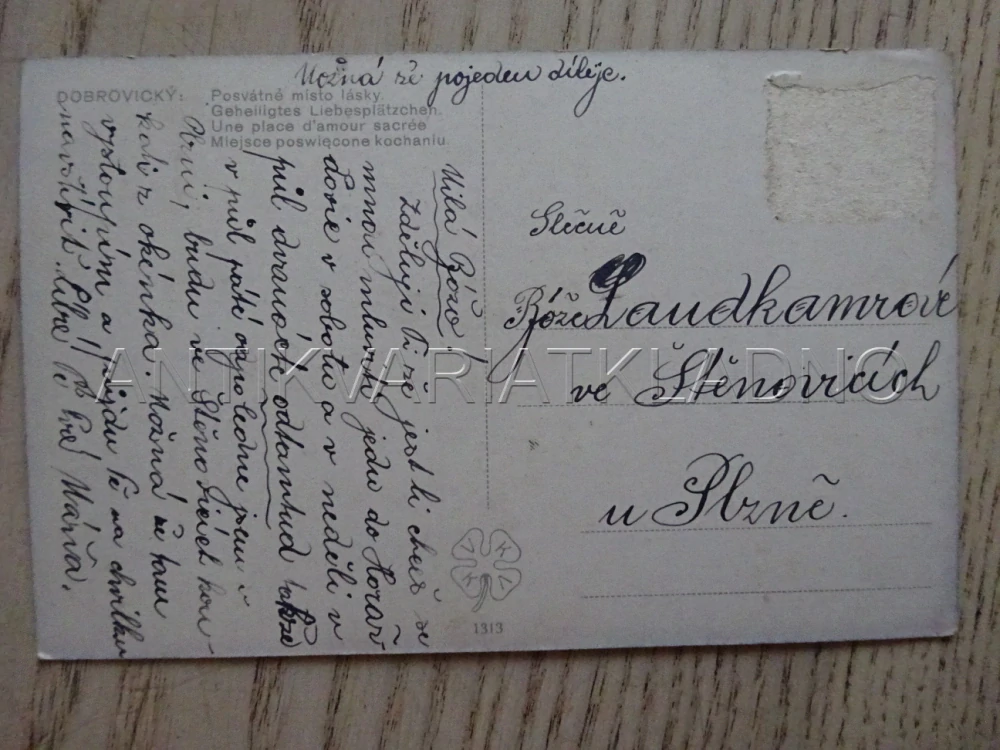 Možná že pojedeu díléje.
DOBROVICKÝ: Posvátné místo lásky.
Geheiligtes Liebesplätzchen.
Une place d'amour sacrée
Miejsce poswięcone kochaniu
Milá Božo!
Zděluji Ti že jestli chceš se
mnou mluvit jedu do Horaž
dovic v sobotu a v neděli v
půl dvanácté odtamtud takže
v půl páté odpoledne jsem v
Plzni, budu ve Štěnovicích kou-
kati z okénka. Možná že tam
vystoupím a půjdu Tě na chvilku
navštívit. Líbá Tě Tvá Máňa.
Slečně
Bože Laudkamrové
ve Štěnovicích
u Plzně.
VKKL
1313
ANTIKVARIATKLADNO